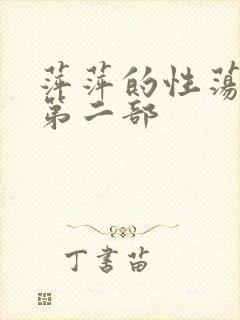 萍萍的性荡
第二部
丁书苗